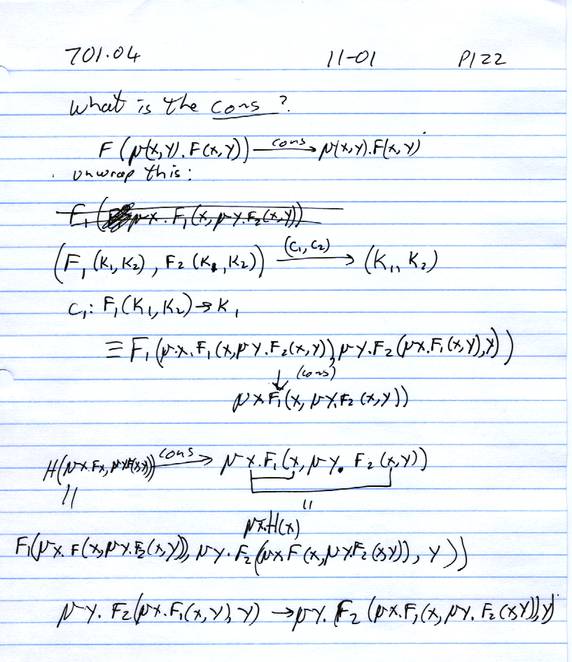 701.04 11-01 P122
What is the cons?
F(μ(x,y).F(x,y)) —cons→ μ(x,y).F(x,y)
unwrap this:
F₁(μx.F₁(x,μy.F₂(x,y)))
(F₁(K₁,K₂), F₂(K₁,K₂)) —(c₁,c₂)→ (K₁,K₂)
c₁: F₁(K₁,K₂)→K₁
≡ F₁(μx.F₁(x,μy.F₂(x,y)), μy.F₂(μx.F₁(x,y),y))
↓ (cons)
μx.F₁(x,μy.F₂(x,y))
H(μx.Fx, ) —cons→ μx.F₁(x,μy.F₂(x,y))
|| ||
μx.H(x)
F₁(μx.F(x,μy.F₂(x,y)), μy.F₂(μx F(x,μy.F₂(x,y)), y))
μy.F₂(μx.F₁(x,y),y) → μy.F₂(μx.F₁(x,μy.F₂(x,y)),y)